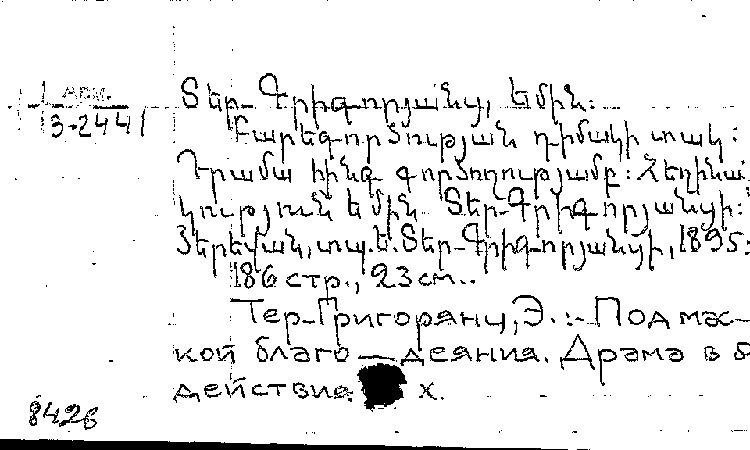 АРМ.
3-2441
Տեր-Գրիգորյանց, Եմին:
Բարեգործության դիմակի տակ:
Դրամա հինգ գործողությամբ: Հեղինա
կություն Եմին Տեր-Գրիգորյանցի:
Յերեվան, տպ. Ե. Տեր-Գրիգորյանցի, 1895:
186 стр., 23 см..
Тер-Григорянц, Э. :- Под мас-
кой благо-деяния. Драма в 5
действие х.
8426